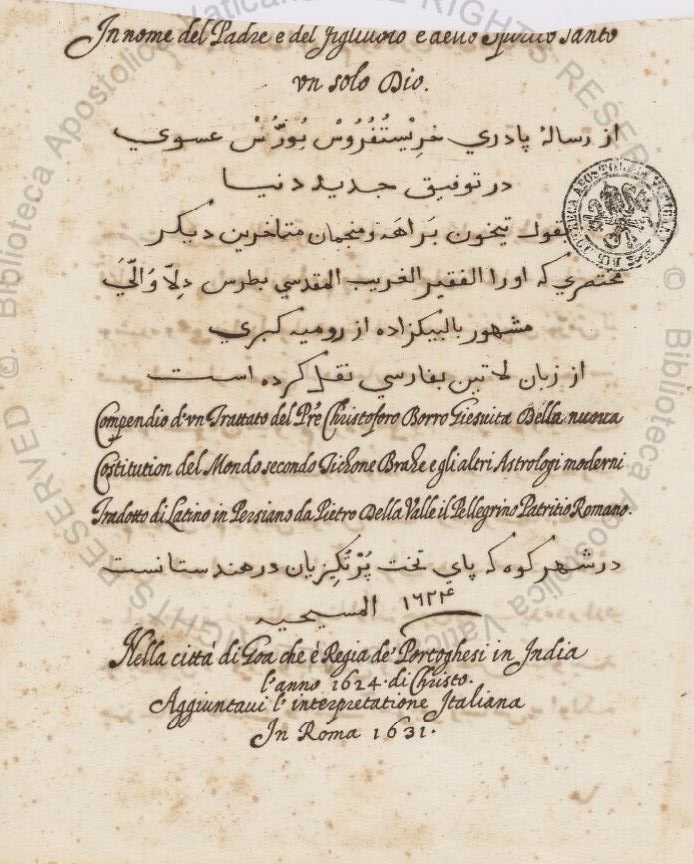 In nome del Padre e del figliuolo e dello Spirito santo
vn solo Dio.
از رسالهٔ پادري خرِیْستُفُرُوسْ بُورُّسْ عیسوي
در توفیق جدید دنیا
تیخون بَراهَه و منجمان متاخرین دیکر
مختصري که اورا الفقیر الغریب المقدسي پطرس دِلّا وَالّيَ
مشهور بالبیکزاده از رومیه کبري
از زبان لاتین بفارسي نقل کرده است
Compendio d'vn Trattato del Pre Christoforo Borro Giesuita Della nuoua
Costitution del Mondo secondo Tichone Brahe e gli altri Astrologi moderni
Tradotto di Latino in Persiano da Pietro Della Valle il Pellegrino Patritio Romano.
در شهر کوه که پاي تخت پُرْتُکِیزیان در هندستانست
۱۶۲۴ المسیحیه
Nella città di Goa che è Regia de' Portoghesi in India
l'anno 1624. di Christo.
Aggiuntaui l'interpretatione Italiana
In Roma 1631.